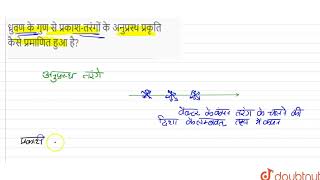 ध्रुवण के गुण से प्रकाश-तरंगों के अनुप्रस्थ प्रकृति
कैसे प्रमाणित हुआ है?
अनुप्रस्थ तरंगे
वेक्टर के कंपन तरंग के चलने की
दिशा के लम्बवत् तल में कंपन
प्रकाश
doubtnut